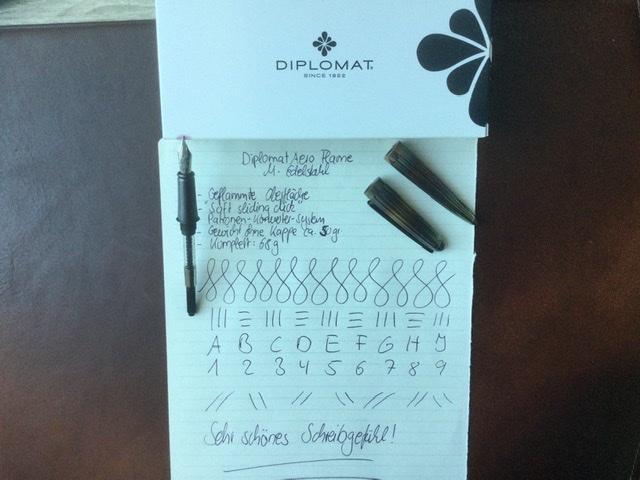 DIPLOMAT
SINCE 1922
Diplomat Aero Flame
M. Edelstahl
- Geflammte Oberfläche
- "Soft sliding click"
- Patronen-Konverter-System
- Gewicht ohne Kappe ca. 50gr
- Komplett: 68g
A B C D E F G H I
1 2 3 4 5 6 7 8 9
Sehr schönes Schreibgefühl!